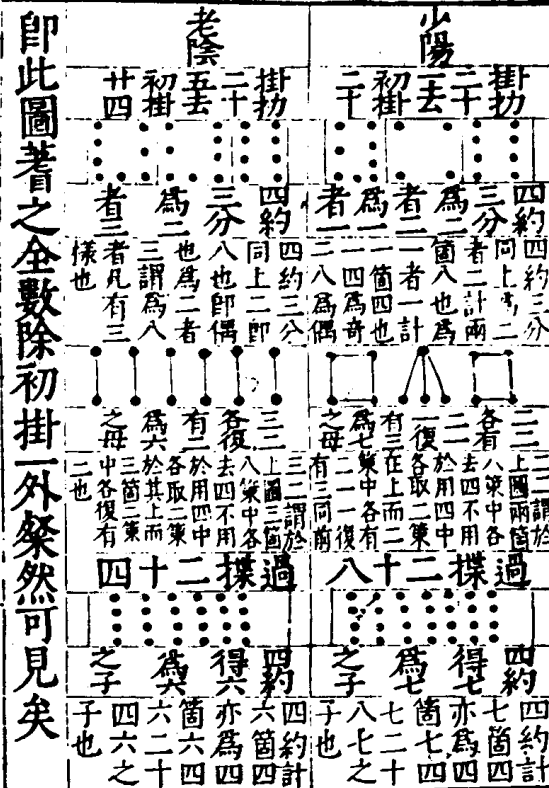 少陽
掛扐
二十
一去
初掛
二干
四約
三分
爲二
者二
爲一
者一
四約三分
同上爲二
者二計兩
箇八也爲
一者一計
一箇四也
一四爲奇
二八爲偶
二二
各有
二一
一復
有三
爲七
之母
三二謂於
上圖兩箇
八策中各
去四不用
於用四中
各取二策
在上而二
策中各有
二一一復
有三同前
過揲二十八
四約
得七
爲七
之子
四約計
七箇四
亦爲四
箇七四
七二十
八七之
子也
老陰
掛扐
二十
五去
初掛
廿四
四約
三分
爲二
者三
四約三分
同上二卽
八也卽偶
也爲二者
三謂爲八
者凡有三
樣也
三二
各復
有二
爲六
之母
三二謂於
上圖三箇
八策中各
去四不用
於用四中
各取二策
於其上而
三箇二策
中各復有
二也
過揲二十四
四約
得六
爲六
之子
四約計
六箇四
亦爲四
箇六四
六二十
四六之
子也
卽此圖蓍之全數除初掛一外粲然可見矣